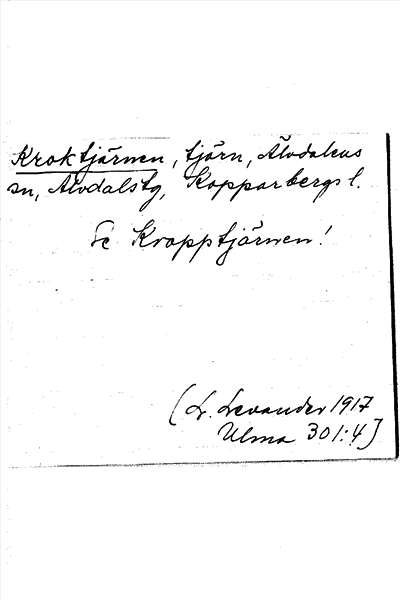 Kroktjärnen, tjärn, Älvdalens
sn, Älvdalstg, Kopparbergs l.
Se Kropptjärnen!
(L. Levander 1917
Ulma 301:4]